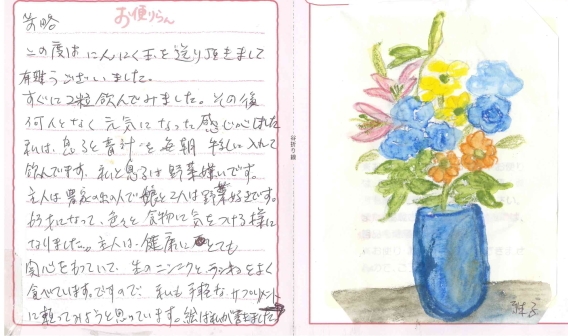 お便りらん
前略
この度は にんにく玉を送り頂きまして
有難うございました。
すぐに2粒飲んでみました。その後
何んとなく元気になった感じがしました
私は、息子と青汁を毎朝 牛乳に入れて
飲んでます、私と息子は野菜嫌いです。
主人は農家の出の人で娘と2人は野菜好きです。
になって、色々と食物に気をつける様に
なりました。主人は、健康にとても
関心をもっていて、生のニンニクと、ラッキョをよく
食べています。ですので、私も手軽な、サプリメント
に頼ってみようと思っています。絵は私が書きました。
谷折り線